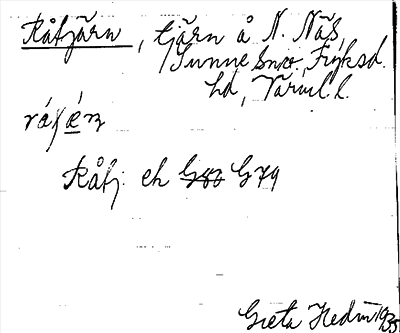 Råtjärn, tjärn å N. Näs,
Sunne sn., Fryksd.
hd, Värml. l.
Råtj. ek G80 G79
Greta Hedin 1935